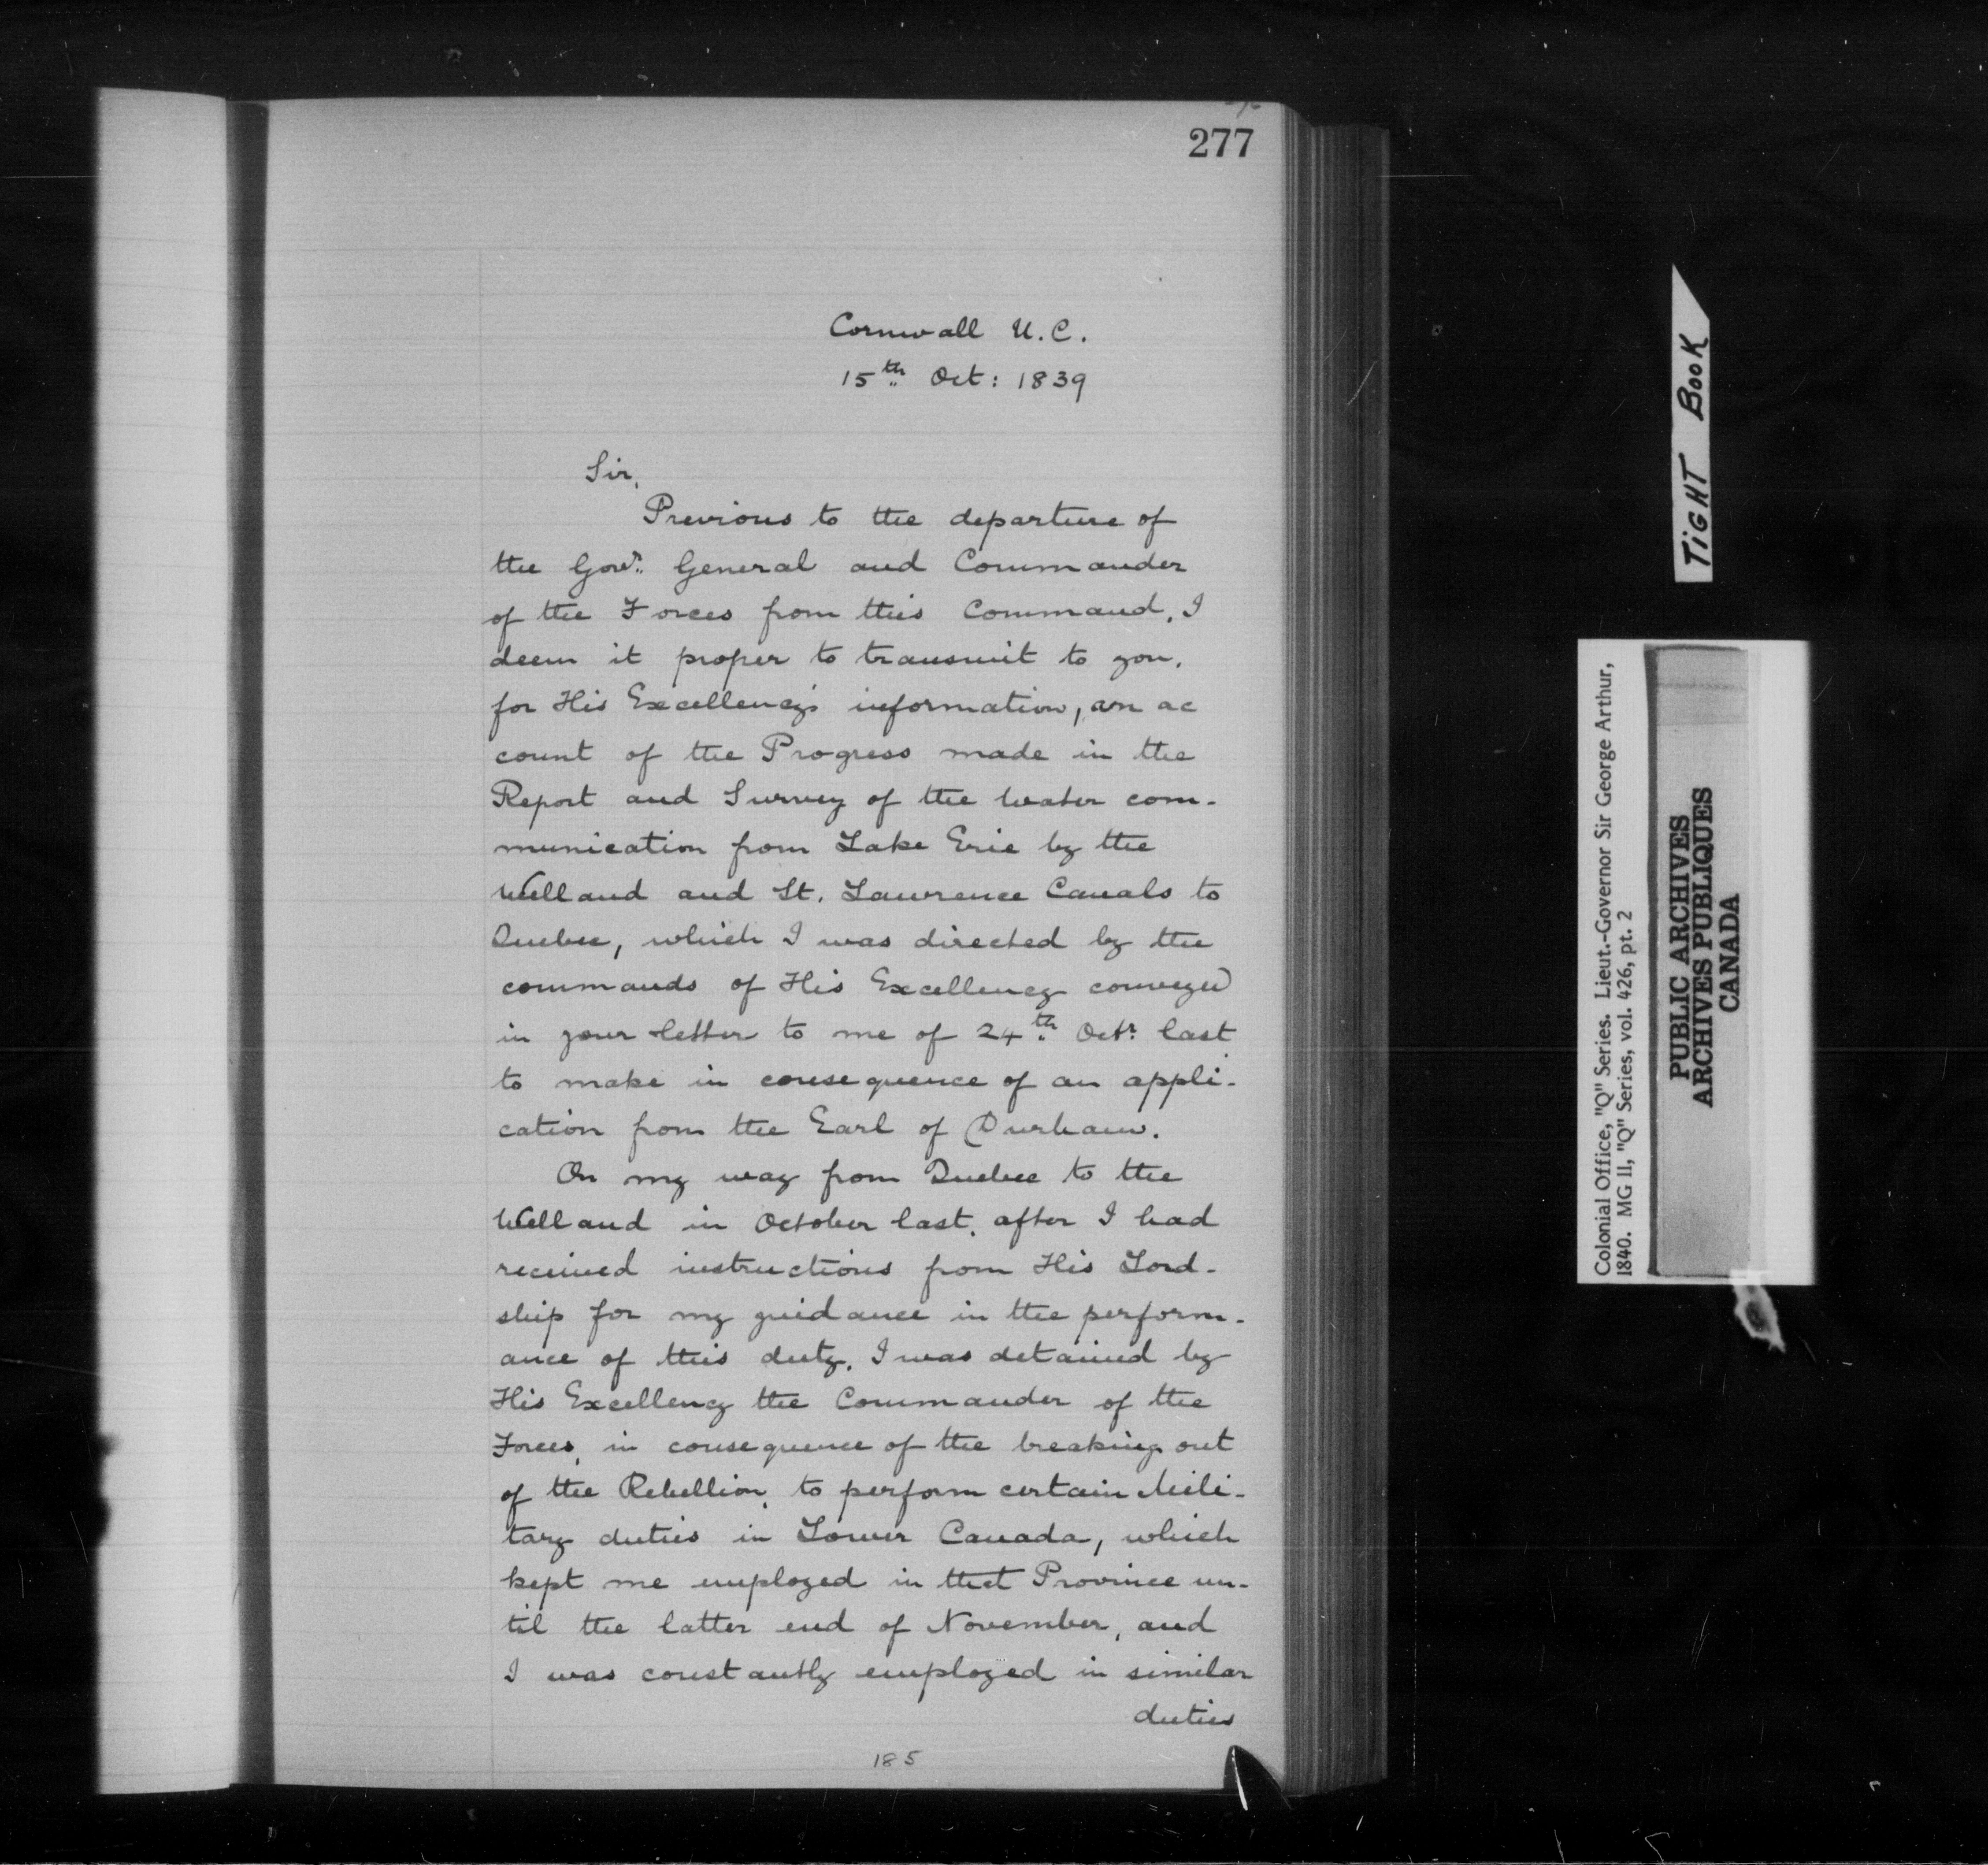 277
Cornwall U.C.
15th Oct: 1839
Sir,
Previous to the departure of
the Govr. General and Commander
of the Forces from this Command, I
deem it proper to transmit to you,
for His Excellency's information, an ac
count of the Progress made in the
Report and Survey of the Water com-
munication from Lake Erie by the
Welland and St. Lawrence Canals to
Quebec, which I was directed by the
commands of His Excellency conveyed
in your letter to me of 24th Octr. last
to make in consequence of an appli-
cation from the Earl of Durham.
On my way from Quebec to the
Welland in October last, after I had
received instructions from His Lord-
ship for my guidance in the perform-
ance of this duty, I was detained by
His Excellency the Commander of the
Forces, in consequence of the breaking out
of the Rebellion, to perform certain Mili-
tary duties in Lower Canada, which
kept me employed in that Province un-
til the latter end of November, and
I was constantly employed in similar
duties
185
TIGHT BOOK
Colonial Office, "Q" Series. Lieut.-Governor Sir George Arthur,
1840. MG II, "Q" Series, vol. 426, pt. 2
PUBLIC ARCHIVES
ARCHIVES PUBLIQUES
CANADA